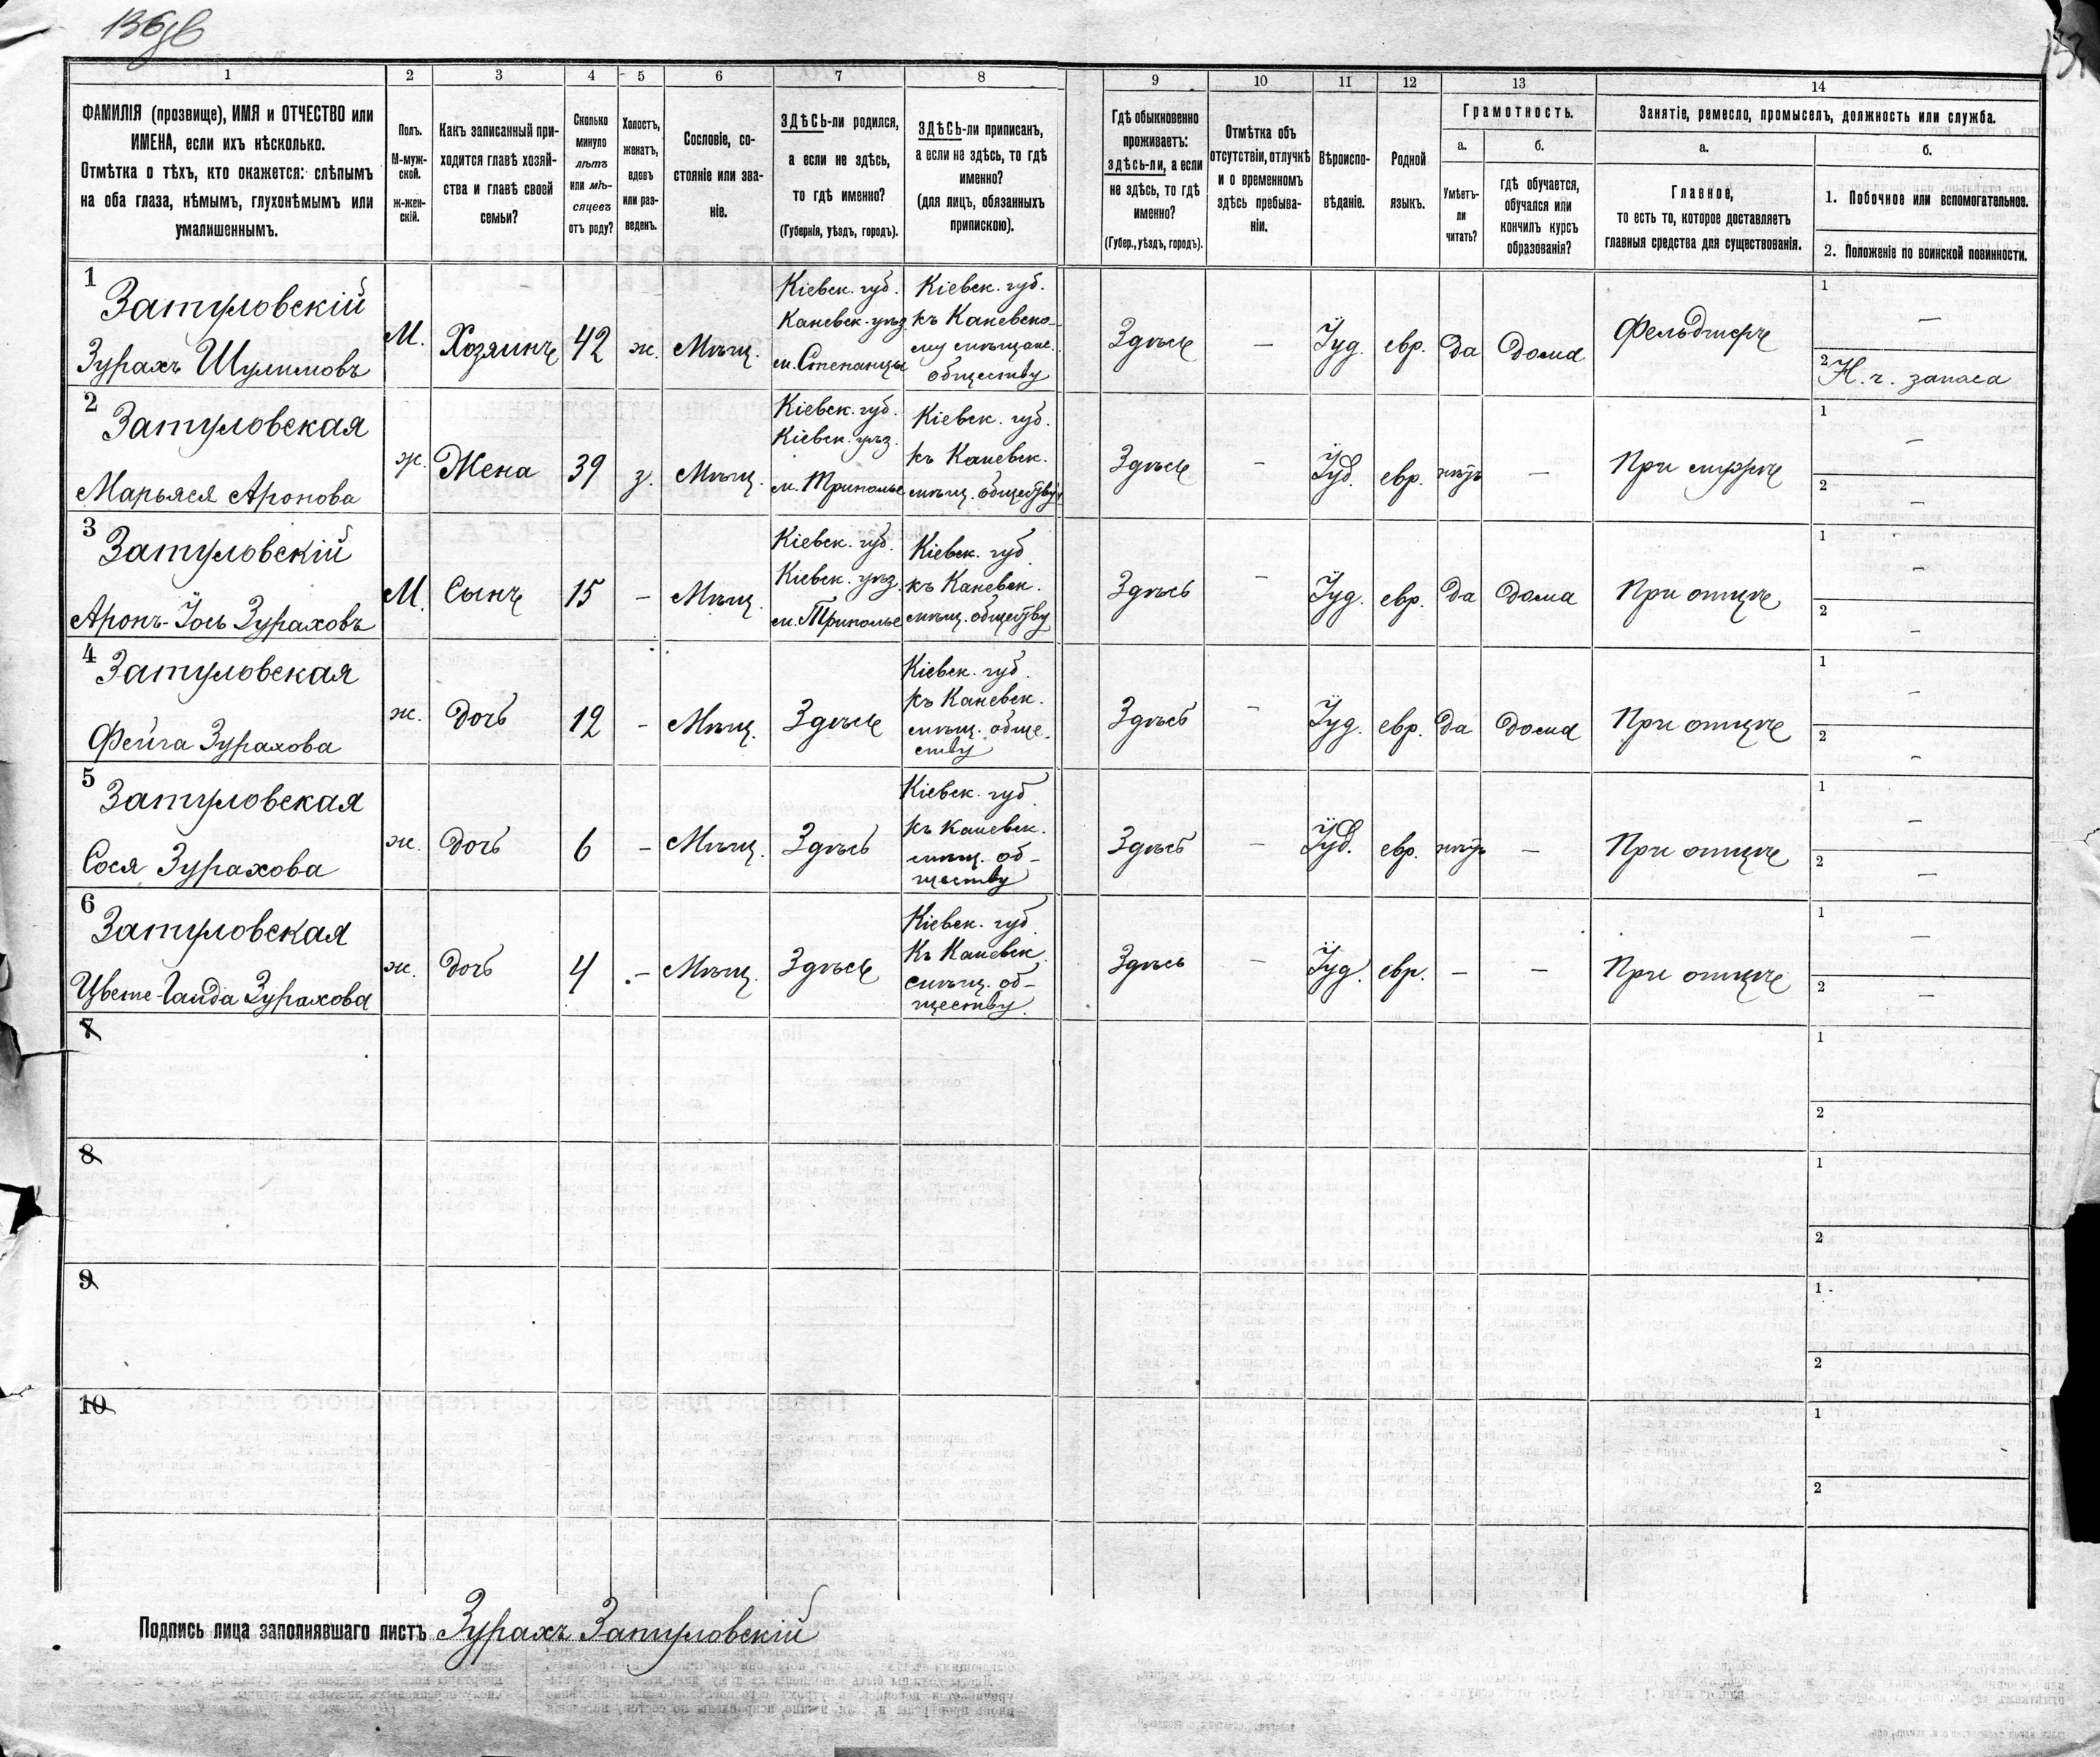 136об
1
2
3
4
5
6
7
8
9
10
11
12
13
14
ФАМИЛІЯ (прозвище), ИМЯ и ОТЧЕСТВО или
ИМЕНА, если ихъ нѣсколько.
Отмѣтка о тѣхъ, кто окажется: слѣпымъ
на оба глаза, нѣмымъ, глухонѣмымъ или
умалишеннымъ.
Полъ.
М-муж-
ской.
ж-жен-
скій.
Какъ записанный при-
ходится главѣ хозяй-
ства и главѣ своей
семьи?
Сколько
минуло
лѣтъ
или мѣ-
сяцевъ
отъ роду?
Холостъ,
женатъ,
вдовъ
или раз-
веденъ.
Сословіе, со-
стояніе или зва-
ніе.
ЗДѢСЬ-ли родился,
а если не здѣсь,
то гдѣ именно?
(Губернія, уѣздъ, городъ).
ЗДѢСЬ-ли приписанъ,
а если не здѣсь, то гдѣ
именно?
(для лицъ, обязанныхъ
припискою).
Гдѣ обыкновенно
проживаетъ:
здѣсь-ли, а если
не здѣсь, то гдѣ
именно?
(Губер., уѣздъ, городъ).
Отмѣтка объ
отсутствіи, отлучкѣ
и о временномъ
здѣсь пребыва-
ніи.
Вѣроиспо-
вѣданіе.
Родной
языкъ.
Грамотность.
а.
Умѣетъ-
ли
читать?
б.
гдѣ обучается,
обучался или
кончилъ курсъ
образованія?
Занятіе, ремесло, промыселъ, должность или служба.
а.
Главное,
то есть то, которое доставляетъ
главныя средства для существованія.
б.
1. Побочное или вспомогательное.
2. Положеніе по воинской повинности.
1
Затуловскій
Зурахъ Шулимовъ
М.
Хозяинъ
42
ж.
Мѣщ.
Кіевск. губ.
Каневск. уѣз.
м. Степанцы
Кіевск. губ.
къ Каневско-
му мѣщанс.
обществу
Здѣсь
—
Іуд.
евр.
да
дома
Фельдшеръ
1
—
2
Н. ч. запаса
2
Затуловская
Марьяся Аронова
ж.
Жена
39
з.
Мѣщ.
Кіевск. губ.
Кіевск. уѣз.
м. Триполье
Кіевск. губ.
къ Каневск.
мѣщ. обществу
Здѣсь
—
Іуд.
евр.
нѣтъ
—
При мужѣ
1
—
2
—
3
Затуловскій
Аронъ-Іось Зураховъ
М.
Сынъ
15
—
Мѣщ.
Кіевск. губ.
Кіевск. уѣз.
м. Триполье
Кіевск. губ
къ Каневск.
мѣщ. обществу
Здѣсь
—
Іуд.
евр.
да
дома
При отцѣ
1
—
2
—
4
Затуловская
Фейга Зурахова
ж.
Дочь
12
—
Мѣщ.
Здѣсь
Кіевск. губ.
къ Каневск.
мѣщ. обще-
ству
Здѣсь
—
Іуд.
евр.
да
дома
При отцѣ
1
—
2
—
5
Затуловская
Сося Зурахова
ж.
Дочь
6
—
Мѣщ.
Здѣсь
Кіевск. губ.
къ Каневск.
мѣщ. об-
ществу
Здѣсь
—
Іуд.
евр.
нѣтъ
—
При отцѣ
1
—
2
—
6
Затуловская
Зурахова
ж.
Дочь
4
—
Мѣщ.
Здѣсь
Кіевск. губ.
Къ Каневск.
мѣщ. об-
ществу.
Здѣсь
—
Іуд.
евр.
—
—
При отцѣ
1
—
2
—
7
1
2
8
1
2
9
1
2
10
1
2
Подпись лица заполнявшаго листъ Зурахъ Затуловскій